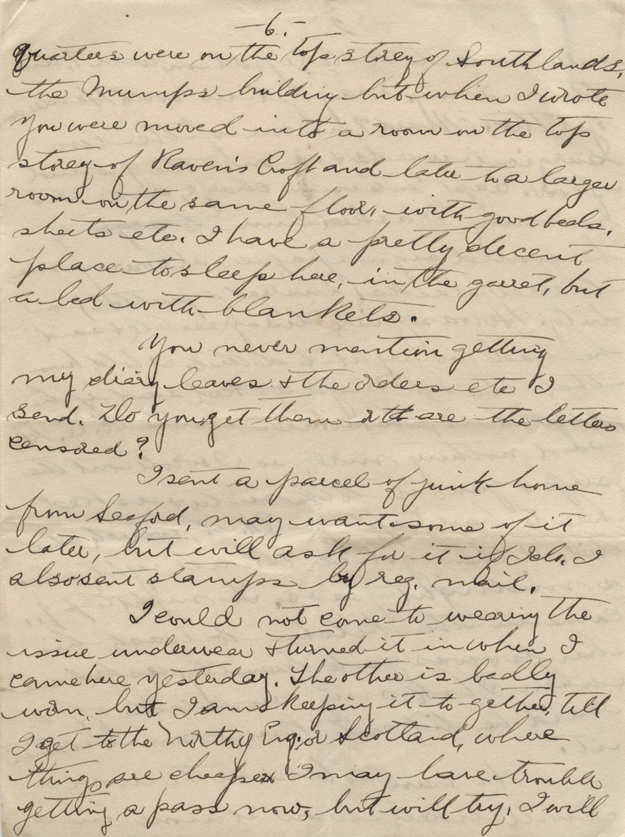 -6.-
quarters were on the top storey of Southlands,
the Mumps building but when I wrote
you were moved into a room on the top
storey of Raven's Croft and later to a larger
room on the same floor, with good beds,
sheets etc. I have a pretty decent
place to sleep here, in the garret, but
a bed with blankets.
You never mention getting
my diary leaves & the orders etc I
send. Do you get them & are the letters
censored?
I sent a parcel of junk home
from Seaford, may want some of it
later, but will ask for it if I do. I
also sent stamps by reg. mail.
I could not come to wearing the
issue underwear & turned it in when I
came here yesterday. The other is badly
worn, but I am keeping it to-gether till
I get to the North of Eng. or Scotland, where
things are cheaper. I may have trouble
getting a pass now, but will try. I will